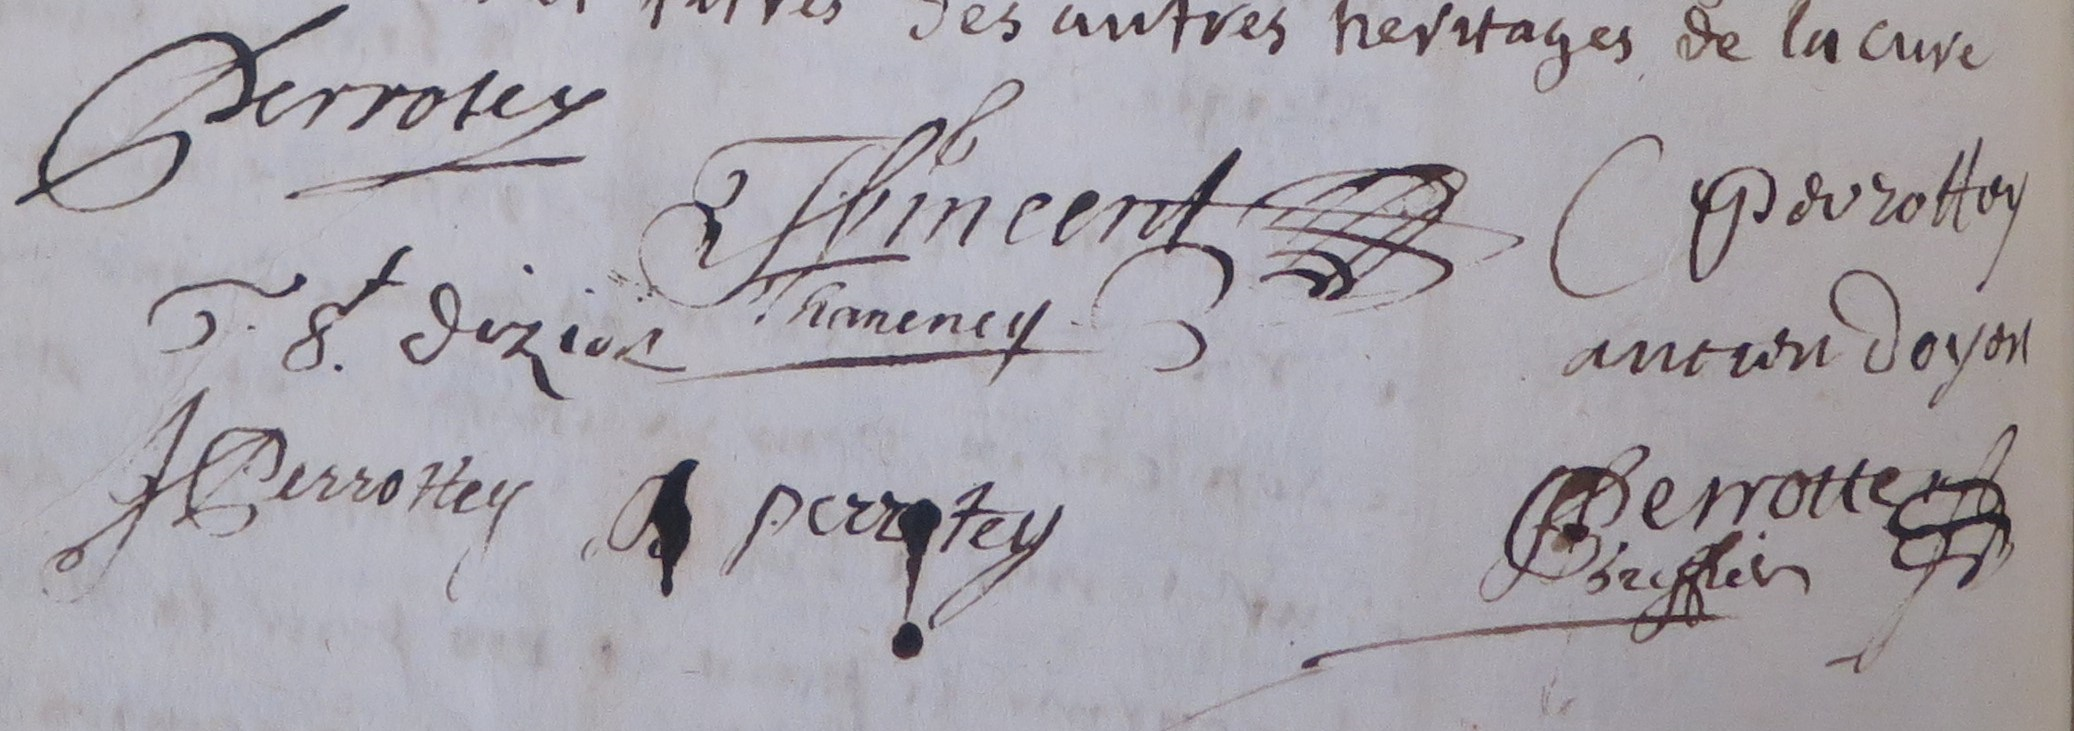 des autres heritages de la cure
Perrotey
Vincent
C perrottey
J. St. dizier
Thameney
ancien doyen
J Perrottey
perrotey
Perrottey
greffier